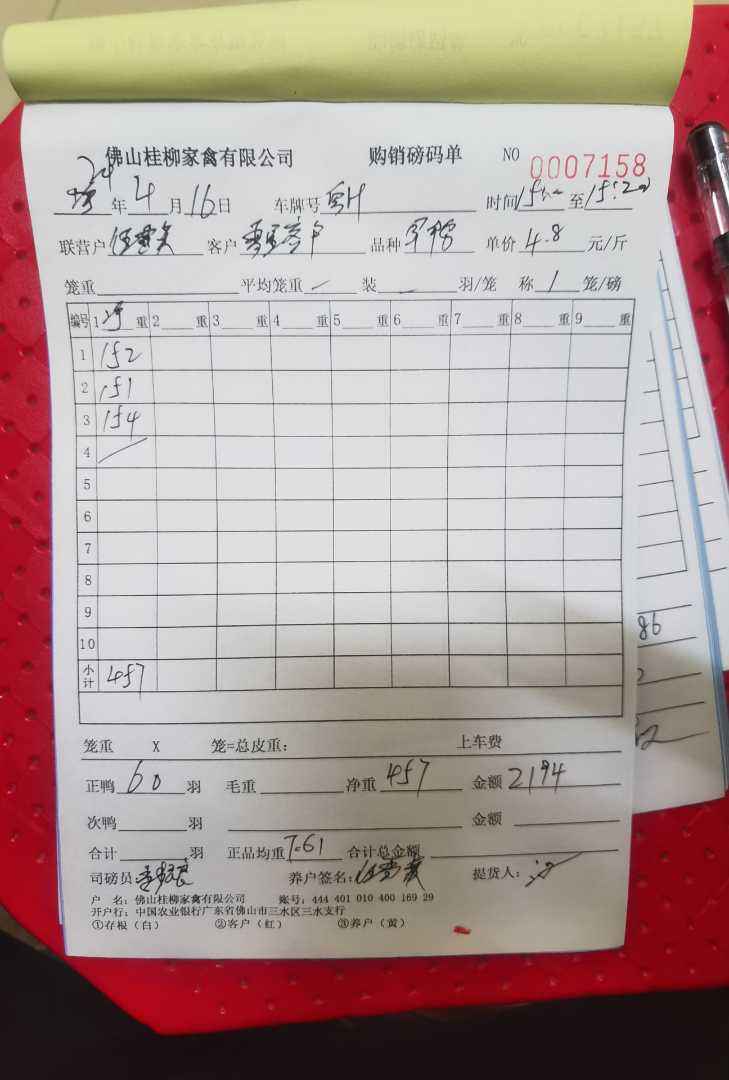 佛山桂柳家禽有限公司 购销磅码单 NO 0007158
24年4月16日 车牌号 时间 至
联营户 客户 品种 单价4.8元/斤
笼重 平均笼重 装 羽/笼 称1笼/磅
编号 1净重 2 重 3 重 4 重 5 重 6 重 7 重 8 重 9 重
1 152
2 151
3 154
4
5
6
7
8
9
10
小计 457
笼重 X 笼=总皮重: 上车费
正鸭60羽 毛重 净重457 金额2194
次鸭 羽 金额
合计 羽 正品均重7.61 合计总金额
司磅员: 养户签名: 提货人:
户 名: 佛山桂柳家禽有限公司 账号: 444 401 010 400 169 29
开户行: 中国农业银行广东省佛山市三水区三水支行
①存根(白) ②客户(红) ③养户(黄)
86